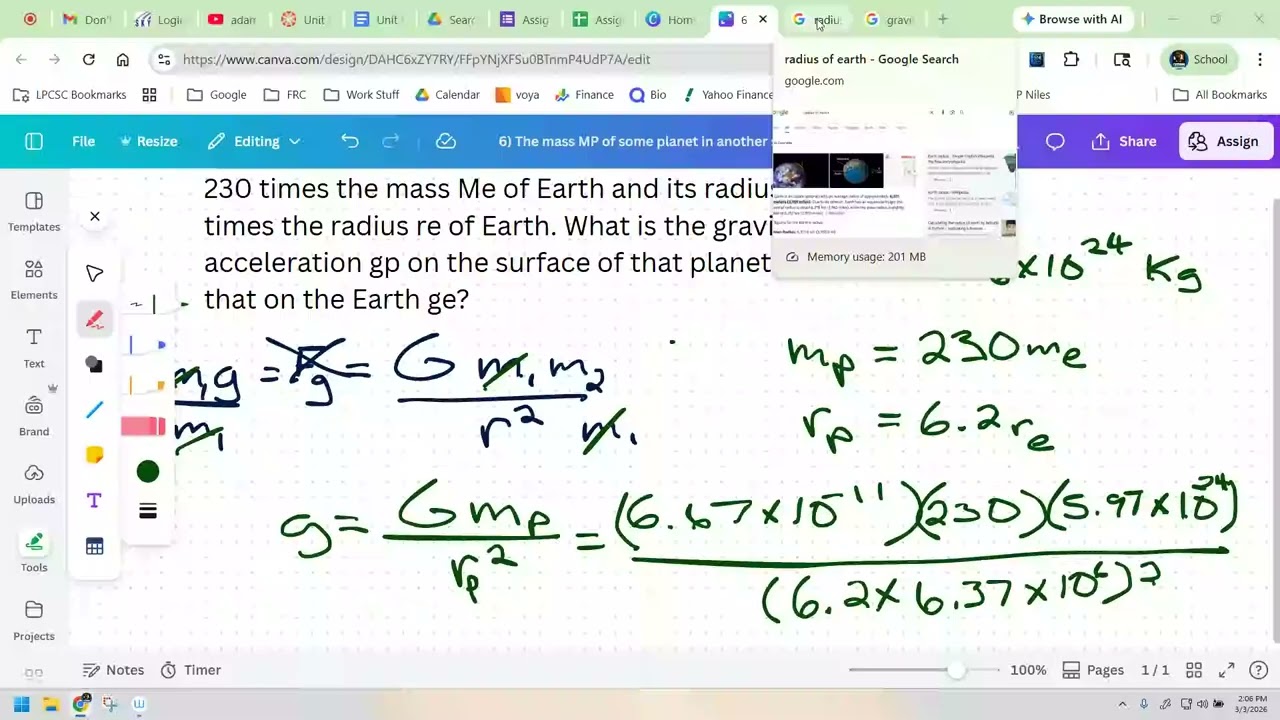 Login
adan
Unit
Unit
Sear
Assig
Assig
Hom
6
radiu
gravi
Browse with AI
https://www.canva.com/design/DAHC6xZY7RY/FFpYNjXFSu0BTnmP4UdP7A/edit
School
radius of earth - Google Search
google.com
LPCSC Bookmarks
Google
FRC
Work Stuff
Calendar
voya
Finance
Bio
Yahoo Finance
P Niles
All Bookmarks
Editing
6) The mass MP of some planet in another
Share
Assign
Memory usage: 201 MB
230 times the mass Me of Earth and its radiu
times the radius re of Earth. What is the gravi
acceleration gp on the surface of that planet
that on the Earth ge?
×10^24 Kg
m1g/m1 = Fg = G m1 m2 / r^2 m1
mp = 230me
rp = 6.2re
g = Gmp / rp^2 = (6.67×10^11)(230)(5.97×10^24) / (6.2×6.37×10^6)^2
Elements
Text
Brand
Uploads
Tools
Projects
Notes
Timer
100%
Pages
1 / 1
2:06 PM
3/3/2026